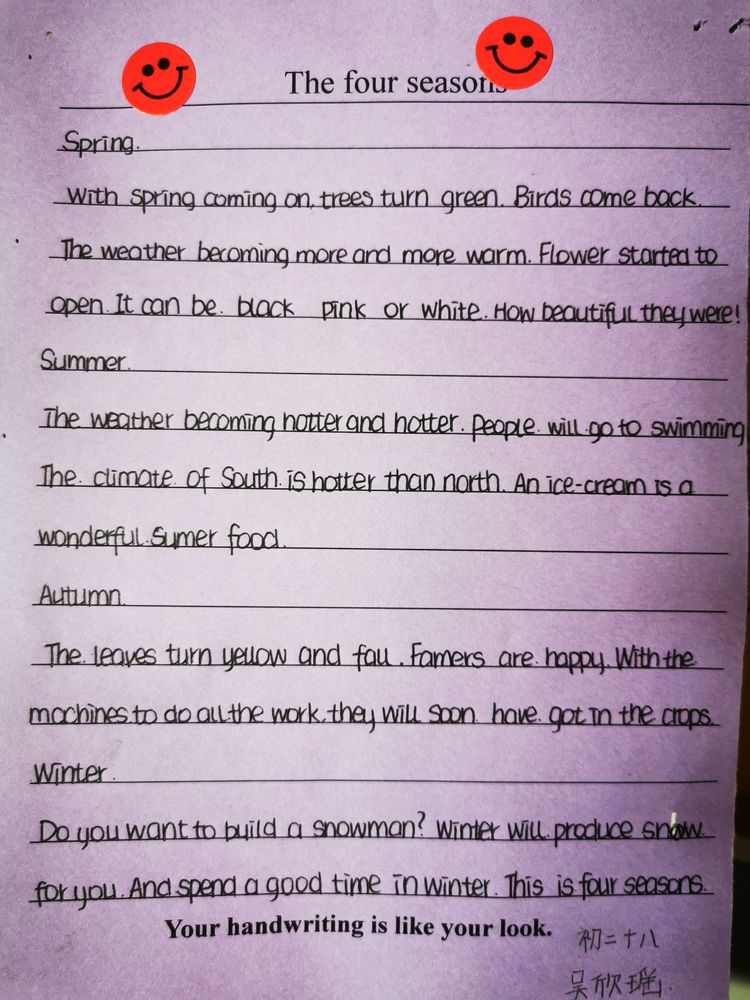 The four seasons
Spring.
With spring coming on, trees turn green. Birds come back.
The weather becoming more and more warm. Flower started to
open. It can be black pink or white. How beautiful they were!
Summer.
The weather becoming hotter and hotter. people will go to swimming
The climate of South is hotter than north. An ice-cream is a
wonderful Sumer food.
Autumn.
The leaves turn yellow and fall. Famers are happy. With the
machines to do all the work, they will soon have got in the crops.
Winter.
Do you want to build a snowman? Winter will produce snow
for you. And spend a good time in winter. This is four seasons.
Your handwriting is like your look.
初二十八
吴欣瑶